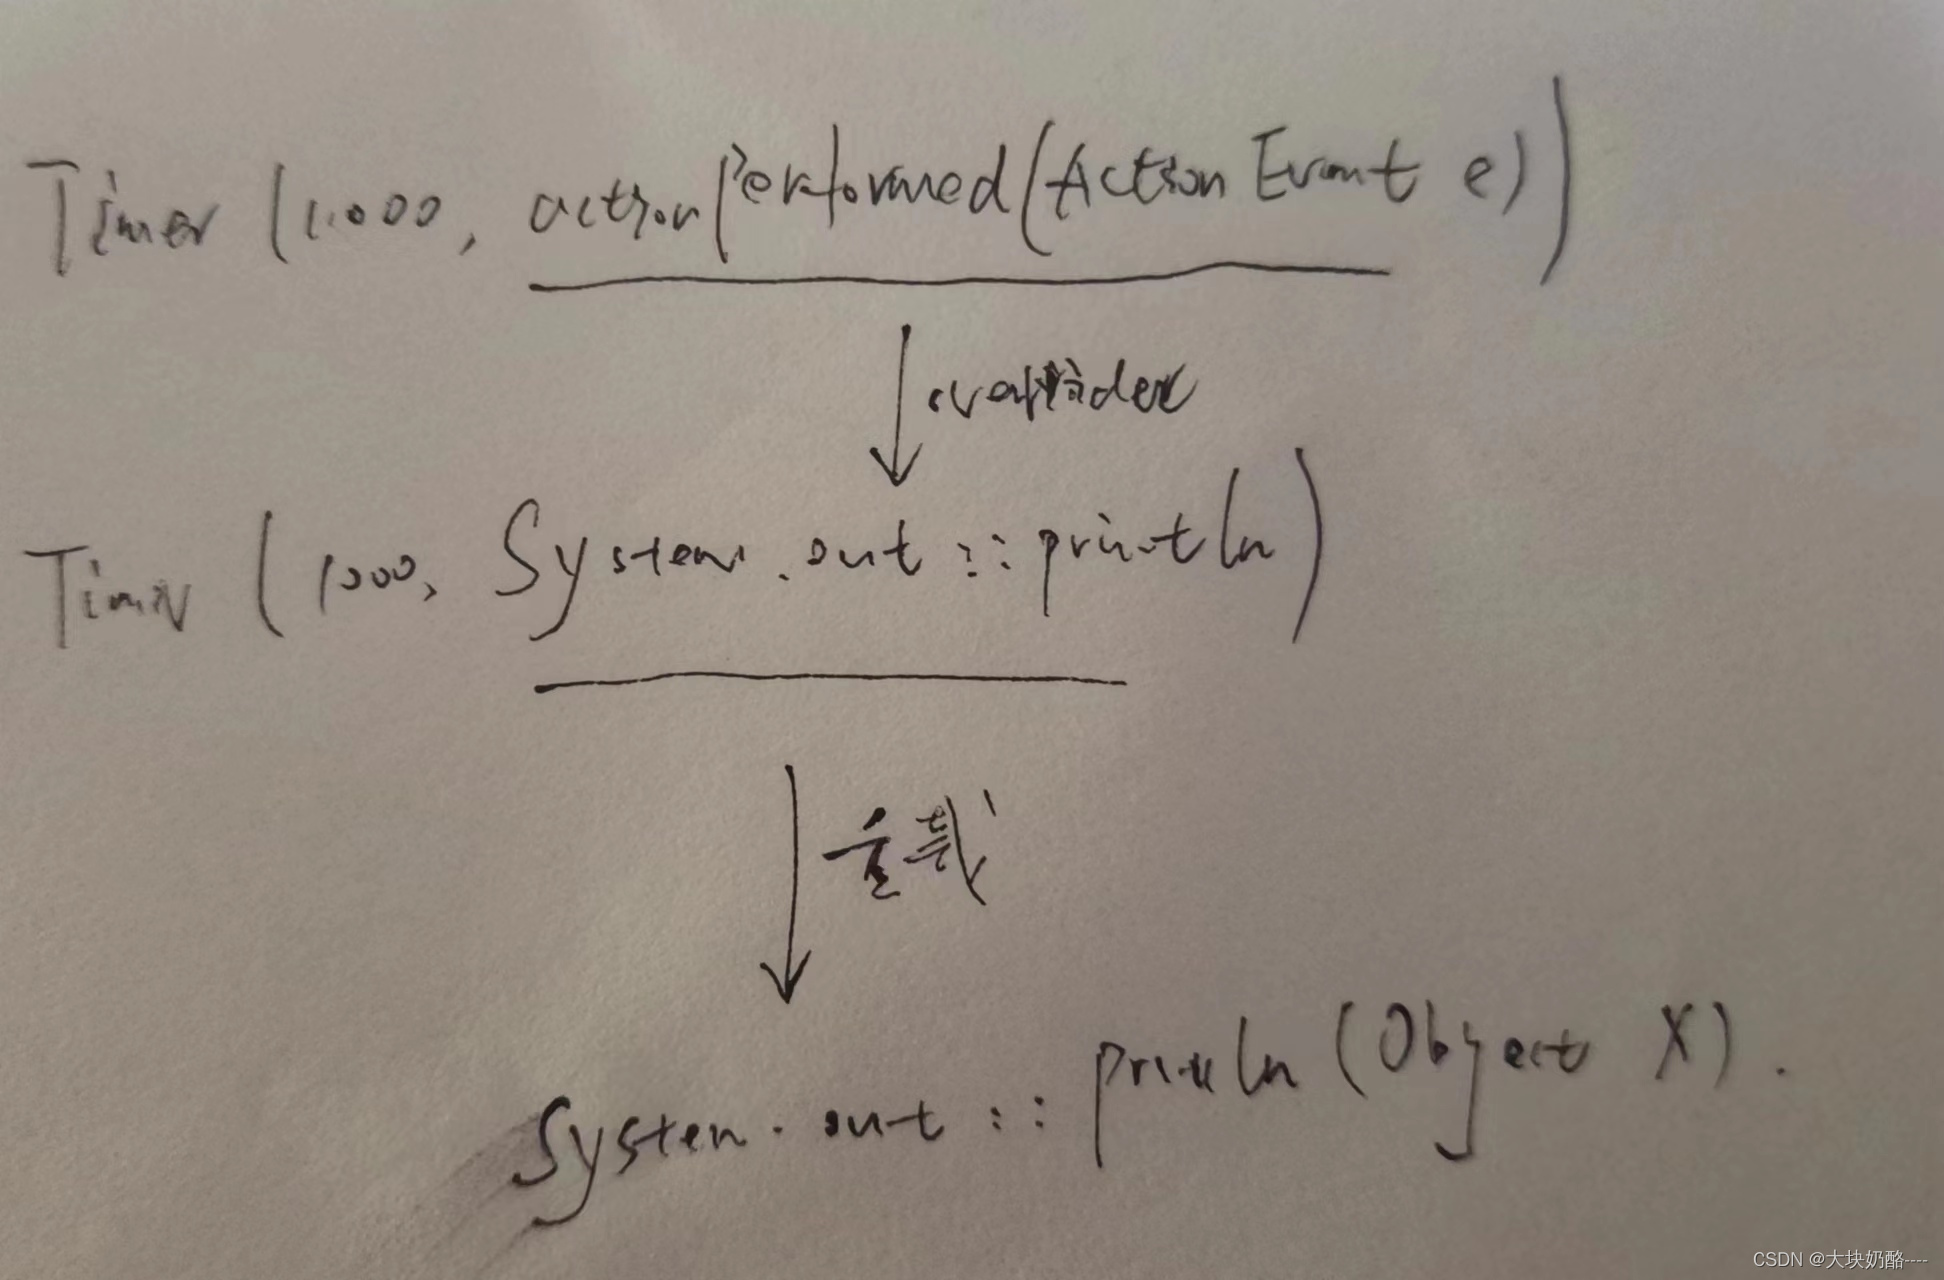 Timer (1.000, actionPerformed(Action Event e))
overrider
Timer (1000, System.out::println)
重载
System.out::println(Object X).
CSDN @大块奶酪----